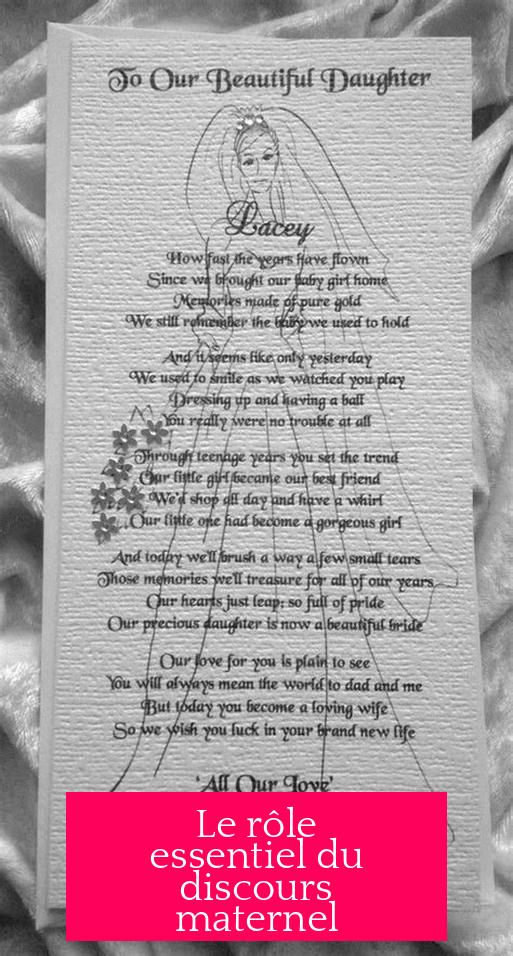 To Our Beautiful Daughter
Lacey
How fast the years have flown
Since we brought our baby girl home
Memories made of pure gold
We still remember the baby we used to hold
And it seems like only yesterday
We used to smile as we watched you play
Dressing up and having a ball
You really were no trouble at all
Through teenage years you set the trend
Our little girl became our best friend
We'd shop all day and have a whirl
Our little one had become a gorgeous girl
And today we'll brush a way a few small tears
Those memories we'll treasure for all of our years
Our hearts just leap; so full of pride
Our precious daughter is now a beautiful bride
Our love for you is plain to see
You will always mean the world to dad and me
But today you become a loving wife
So we wish you luck in your brand new life
'All Our Love'
Le rôle
essentiel du
discours
maternel